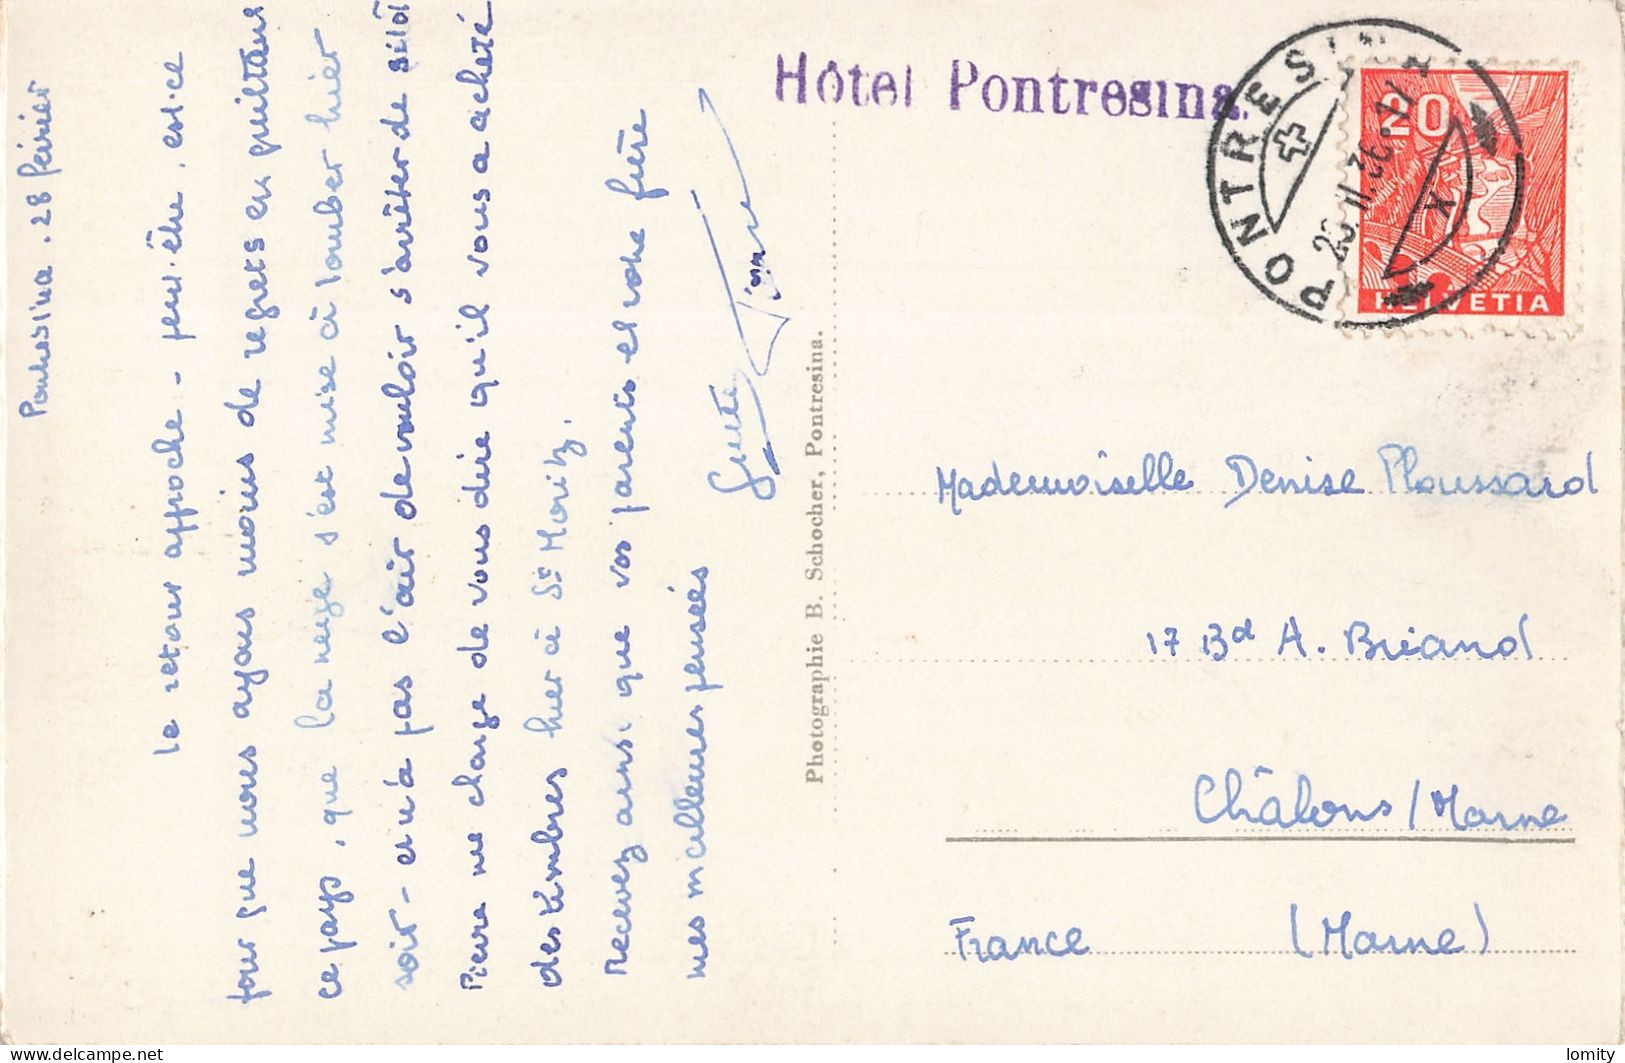 Pontresina. 28 février
le retour approche - peut-être, est-ce
pour que nous ayons moins de regrets en quittant
ce pays, que la neige s'est mise à tomber hier
soir - et n'a pas l'air de vouloir s'arrêter de sitôt
Pierre me charge de vous dire qu'il vous a acheté
des timbres hier à St Moritz.
Recevez ainsi que vos parents et votre frère
mes meilleures pensées
Photographie B. Schocher, Pontresina.
Hôtel Pontresina.
PONTRESINA
HELVETIA
20
Mademoiselle Denise Ploussard
17 Bd A. Briand
Châlons / Marne
France (Marne)
delcampe.net
lomity